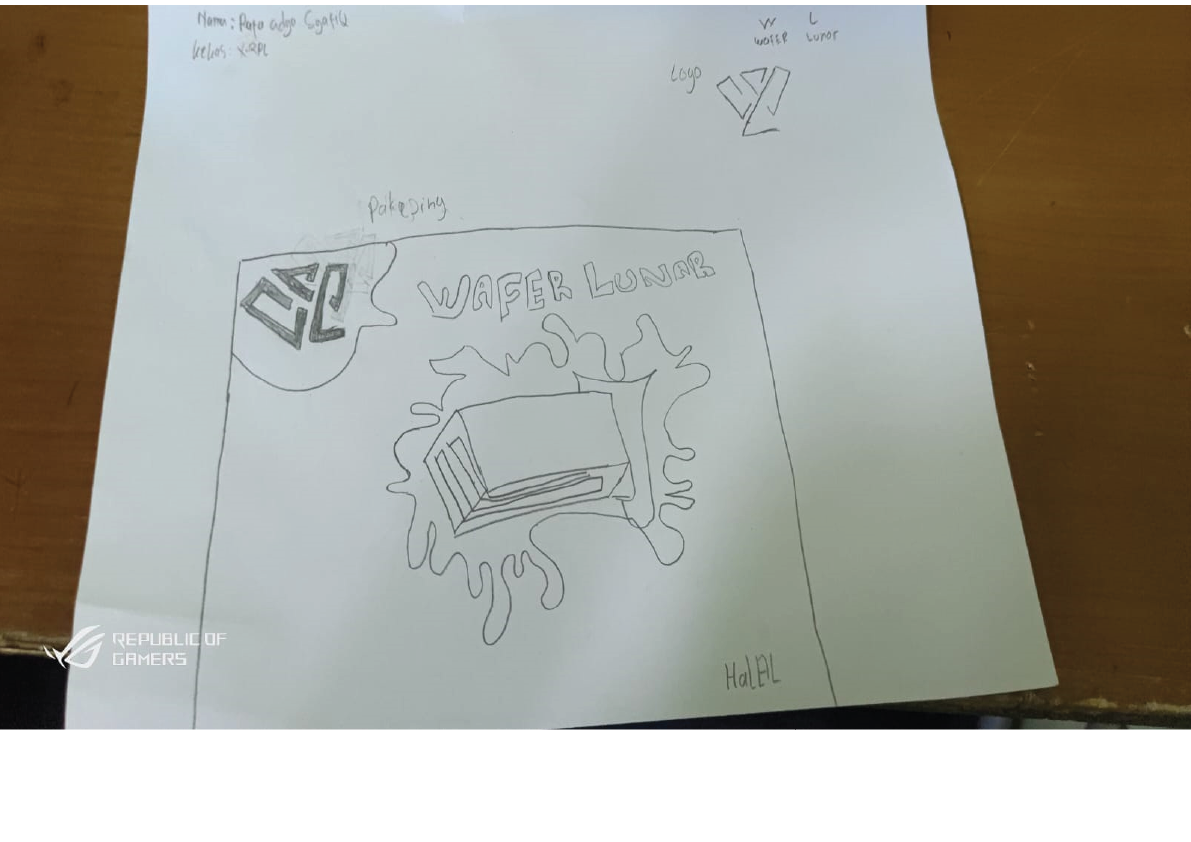 Nama :
Kelas : X-RPL
W L
WAFER Lunar
Logo
Pakeping
WAFER LUNAR
HalAL
REPUBLIC OF
GAMERS